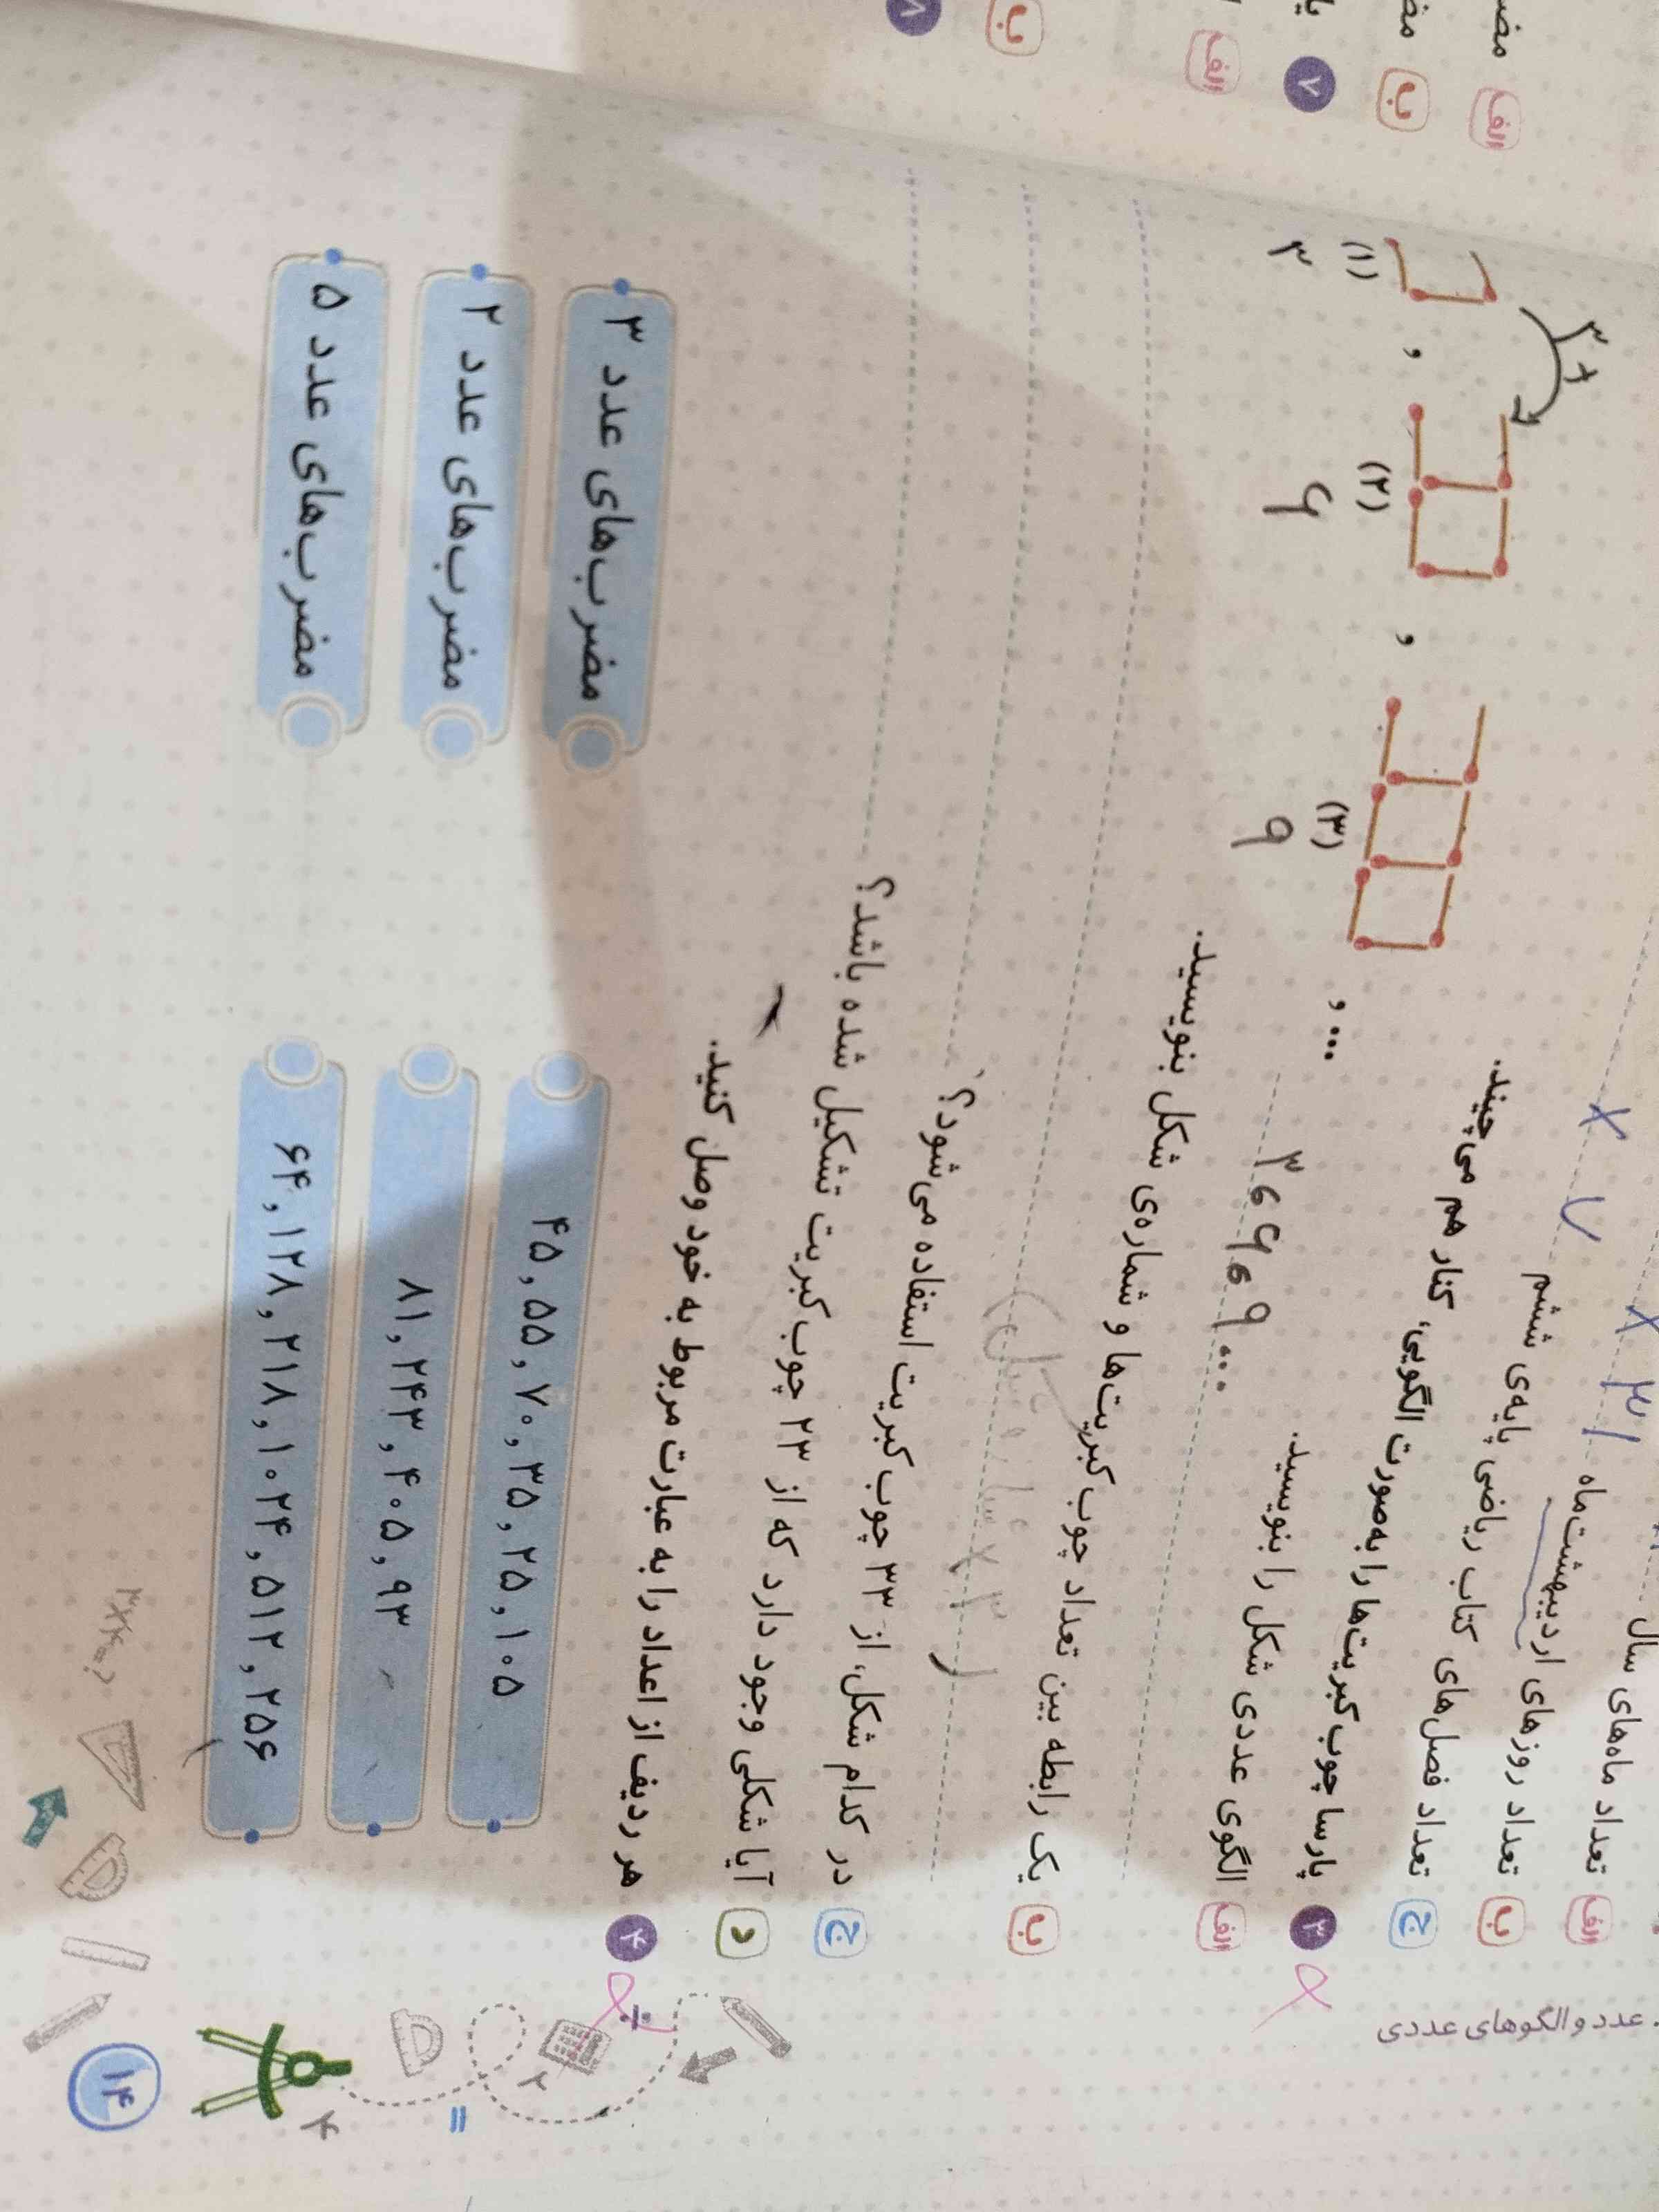 . عدد و الگوهای عددی
الف تعداد ماه‌های سال
ب تعداد روزهای اردیبهشت‌ماه ۳۱
ج تعداد فصل‌های کتاب ریاضی پایه‌ی ششم ۷
۳ پارسا چوب‌کبریت‌ها را به‌صورت الگویی، کنار هم می‌چیند.
+۳
(۱) , (۲) , (۳) , ...
۳ ۶ ۹
الف الگوی عددی شکل را بنویسید. ۳,۶,۹...
ب یک رابطه بین تعداد چوب‌کبریت‌ها و شماره‌ی شکل بنویسید.
ج در کدام شکل، از ۳۳ چوب‌کبریت استفاده می‌شود؟
د آیا شکلی وجود دارد که از ۲۳ چوب‌کبریت تشکیل شده باشد؟
۴ هر ردیف از اعداد را به عبارت مربوط به خود وصل کنید.
۴۵ , ۵۵ , ۷۰ , ۳۵ , ۲۵ , ۱۰۵
مضرب‌های عدد ۳
۸۱ , ۲۴۳ , ۴۰۵ , ۹۳
مضرب‌های عدد ۲
۶۴ , ۱۲۸ , ۲۱۸ , ۱۰۲۴ , ۵۱۲ , ۲۵۶
مضرب‌های عدد ۵
۱۴
الف
ب
۷
الف
ب
۸